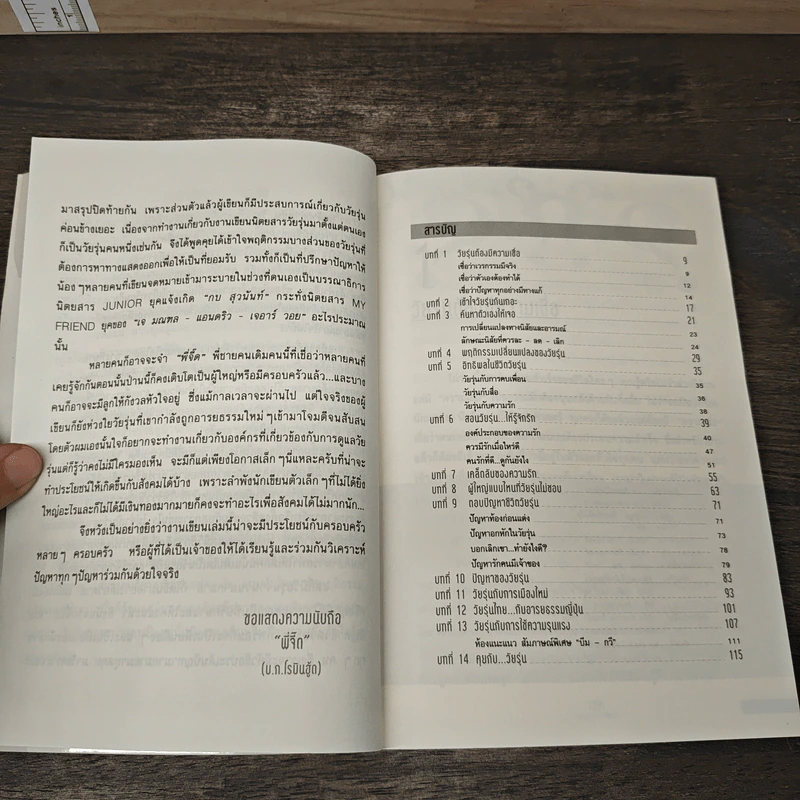 INCHES
1
มาสรุปปิดท้ายกัน เพราะส่วนตัวแล้วผู้เขียนก็มีประสบการณ์เกี่ยวกับวัยรุ่น
ค่อนข้างเยอะ เนื่องจากทำงานเกี่ยวกับงานเขียนนิตยสารวัยรุ่นมาตั้งแต่ตนเอง
ก็เป็นวัยรุ่นคนหนึ่งเช่นกัน จึงได้พูดคุยได้เข้าใจพฤติกรรมบางส่วนของวัยรุ่นที่
ต้องการหาทางแสดงออกเพื่อให้เป็นที่ยอมรับ รวมทั้งก็เป็นที่ปรึกษาปัญหาให้
น้องๆหลายคนที่เขียนจดหมายเข้ามาระบายในช่วงที่ตนเองเป็นบรรณาธิการ
นิตยสาร JUNIOR ยุคแจ้งเกิด "กบ สุวนันท์" กระทั่งนิตยสาร MY
FRIEND ยุคของ "เจ มณฑล - แอนดริว - เจอาร์ วอย" อะไรประมาณ
นั้น
หลายคนก็อาจจะจำ "พี่จี๊ด" พี่ชายคนเดิมคนนี้ที่เชื่อว่าหลายคนที่
เคยรู้จักกันตอนนั้นป่านนี้ก็คงเติบโตเป็นผู้ใหญ่หรือมีครอบครัวแล้ว...และบาง
คนก็อาจจะมีลูกให้กังวลหัวใจอยู่ ซึ่งแม้กาลเวลาจะผ่านไป แต่ใจจริงของผู้
เขียนก็ยังห่วงใยวัยรุ่นที่เขากำลังถูกอารยธรรมใหม่ๆเข้ามาโจมตีจนสับสน
โดยตัวผมเองนั้นใจก็อยากจะทำงานเกี่ยวกับองค์กรที่เกี่ยวข้องกับการดูแลวัย
รุ่นแต่ก็รู้ว่าคงไม่มีใครมองเห็น จะมีก็แต่เพียงโอกาสเล็กๆนี่แหละครับที่น่าจะ
ทำประโยชน์ให้เกิดขึ้นกับสังคมได้บ้าง เพราะลำพังนักเขียนตัวเล็กๆที่ไม่ได้ยิ่ง
ใหญ่อะไรและก็ไม่ได้มีเงินทองมากมายก็คงจะทำอะไรเพื่อสังคมได้ไม่มากนัก...
จึงหวังเป็นอย่างยิ่งว่างานเขียนเล่มนี้น่าจะมีประโยชน์กับครอบครัว
หลายๆ ครอบครัว หรือผู้ที่ได้เป็นเจ้าของให้ได้เรียนรู้และร่วมกันวิเคราะห์
ปัญหาทุกๆปัญหาร่วมกันด้วยใจจริง
ขอแสดงความนับถือ
"พี่จี๊ด"
(บ.ก.โรบินฮู้ด)
สารบัญ
บทที่ 1 วัยรุ่นต้องมีความเชื่อ 9
เชื่อว่าเวรกรรมมีจริง 9
เชื่อว่าตัวเองต้องทำได้ 12
เชื่อว่าปัญหาทุกอย่างมีทางแก้ 14
บทที่ 2 เข้าใจวัยรุ่นกันเถอะ 17
บทที่ 3 ค้นหาตัวเองให้เจอ 21
การเปลี่ยนแปลงทางนิสัยและอารมณ์ 23
ลักษณะนิสัยที่ควรละ - ลด - เลิก 24
บทที่ 4 พฤติกรรมเปลี่ยนแปลงของวัยรุ่น 29
บทที่ 5 อิทธิพลในชีวิตวัยรุ่น 35
วัยรุ่นกับการคบเพื่อน 35
วัยรุ่นกับสื่อ 36
วัยรุ่นกับความรัก 38
บทที่ 6 สอนวัยรุ่น...ให้รู้จักรัก 39
องค์ประกอบของความรัก 40
ควรมีรักเมื่อไหร่ดี 47
คนรักที่ดี...ดูกันยังไง 51
บทที่ 7 เคล็ดลับของความรัก 55
บทที่ 8 ผู้ใหญ่แบบไหนที่วัยรุ่นไม่ชอบ 63
บทที่ 9 ตอบปัญหาชีวิตวัยรุ่น 71
ปัญหาท้องก่อนแต่ง 71
ปัญหาอกหักในวัยรุ่น 73
บอกเลิกเขา...ทำยังไงดี? 78
ปัญหารักคนมีเจ้าของ 79
บทที่ 10 ปัญหาของวัยรุ่น 83
บทที่ 11 วัยรุ่นกับการเมืองใหม่ 93
บทที่ 12 วัยรุ่นไทย...กับอารยธรรมญี่ปุ่น 101
บทที่ 13 วัยรุ่นกับการใช้ความรุนแรง 107
ห้องแนะแนว สัมภาษณ์พิเศษ "บีม - กวี" 111
บทที่ 14 คุยกับ...วัยรุ่น 115